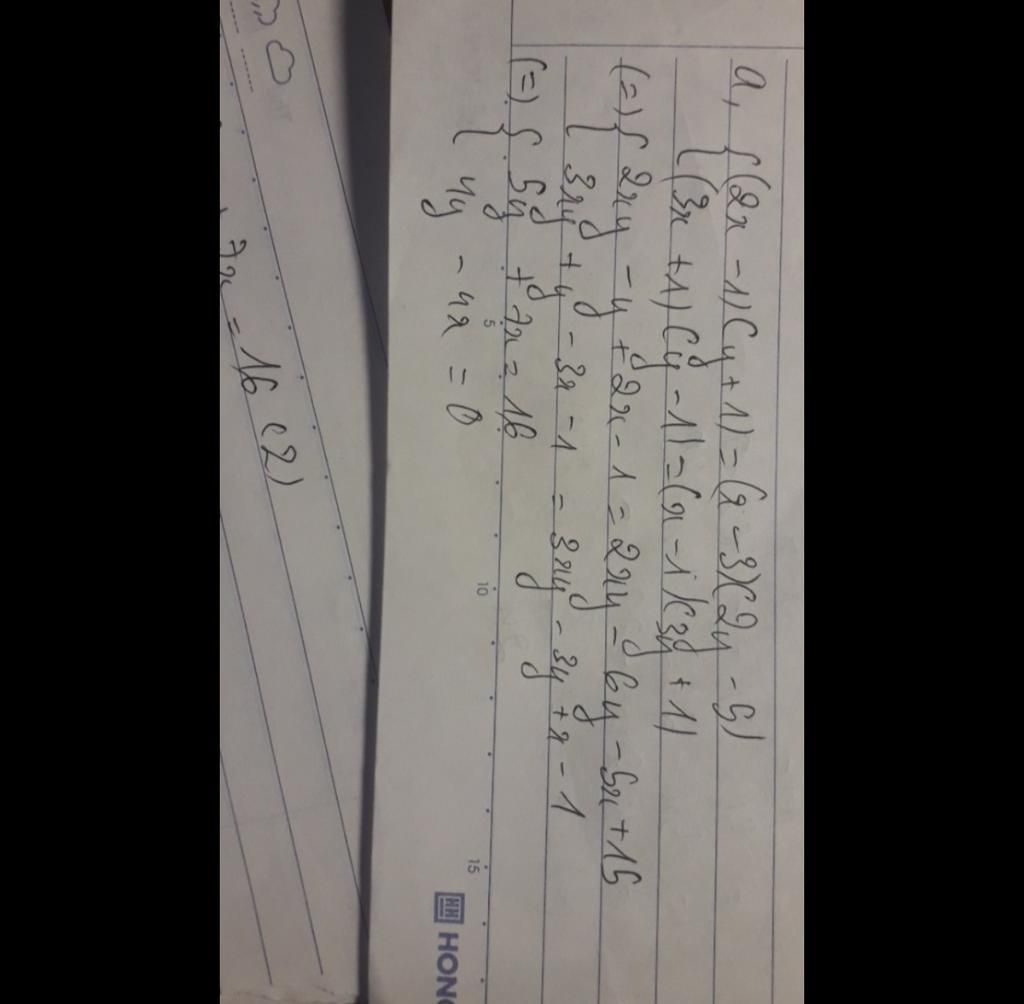 a, { (2x - 1)(y + 1) = (x - 3)(2y - 5)
{ (3x + 1)(y - 1) = (x - 1)(3y + 1)
(=) { 2xy - y + 2x - 1 = 2xy - 6y - 5x + 15
{ 3xy + y - 3x - 1 = 3xy - 3y + x - 1
(=) { 5y + 7x = 16
{ 4y - 4x = 0
5 10 15
HONG
7x = 16 (2)